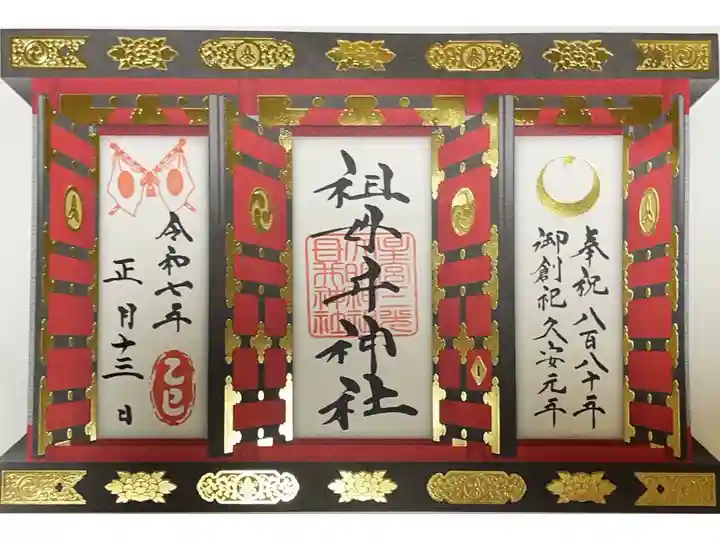 奉祝八百八十年
御創祀久安元年
祖母井神社
令和七年
正月十三日
乙巳